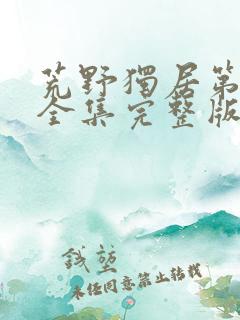 荒野獨居第
全集完整版
錢堃
未经同意禁止转载